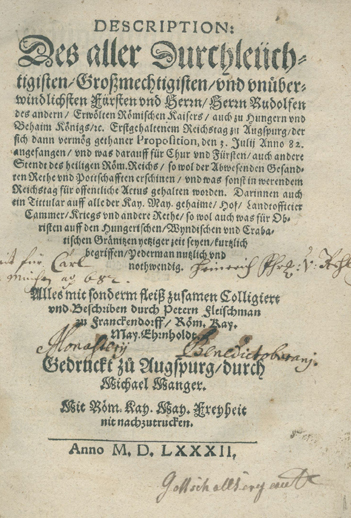 DESCRIPTION:
Des aller Durchleüch-
tigisten/Großmechtigisten/vnd vnüber-
windlichsten Fürsten vnd Herrn/ Herrn Rudolfen
des andern/ Erwölten Römischen Kaisers/ auch zu Hungern vnd
Behaim Königs/ꝛc. Erstgehaltenem Reichstag zu Augspurg/ der
sich dann vermög gethaner Proposition, den 3. Julij Anno 82.
angefangen/ vnd was darauff für Chur vnd Fürsten/ auch andere
Stende des heiligen Röm. Reichs/ so wol der Abwesenden Gesand-
ten Rethe vnd Pottschafften erschinen/ vnd was sonst in werendem
Reichstag für offentliche Actus gehalten worden. Darinnen auch
ein Titular auff alle der Kay. May. gehaime/ Hof/ Landrofficier
Cammer/ Kriegs vnd andere Rethe/ so wol auch was für Ob-
risten auff den Hungerischen/ Wyndischen vnd Craba-
tischen Gränitzen yetziger zeit seyen/ kurtzlich
begriffen/ Yederman nutzlich vnd
nothwendig.
Alles mit sonderm fleiß zusamen Colligiert
vnd Beschriben durch Petern Fleischman
zu Franckendorff/ Röm. Kay.
May. Ehrnholdt
Monasterij Benedictoburani
Gedruckt zu Augspurg/ durch
Michael Manger.
Mit Röm. Kay. May. Freyheit
nit nachzutrucken.
Anno M. D. LXXXII,